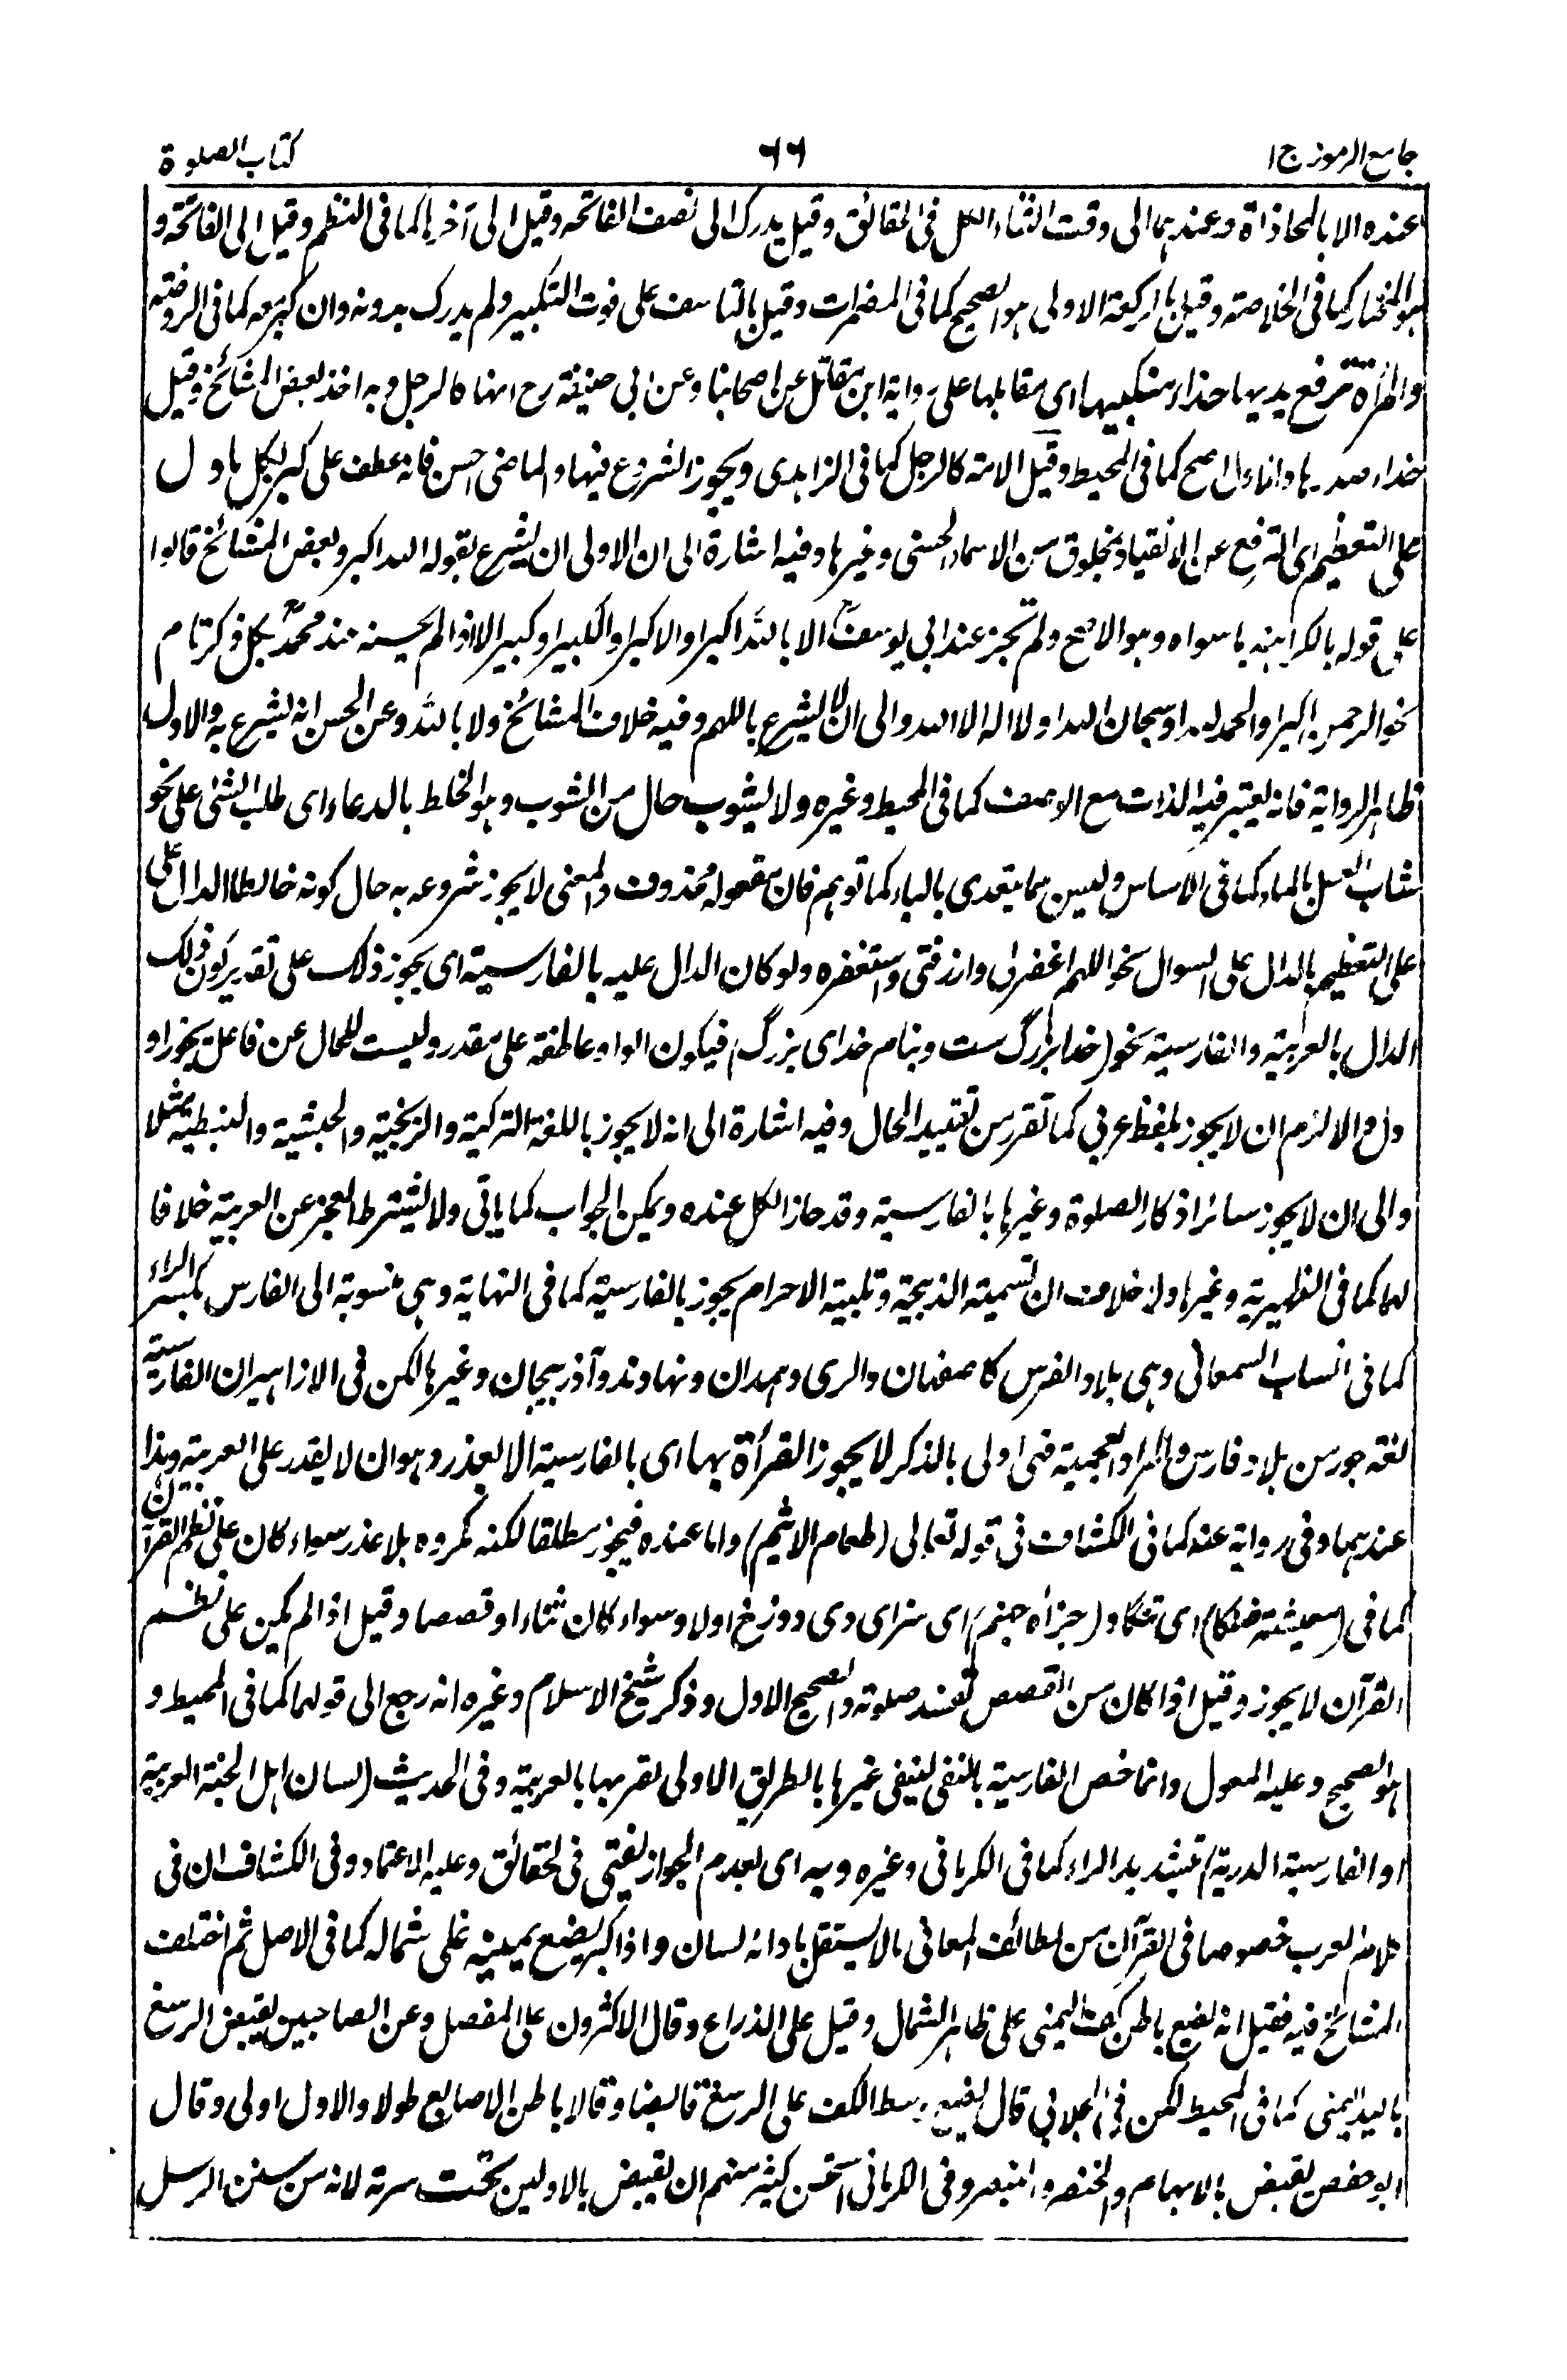 جامع الرموز ج ١
٦٦
كتاب الصلوة
عنده الا بالمحاذاة وعندهما الى وقت الثناء الكل فى الحقائق وقيل يدرك الى نصف الفاتحه وقيل الى آخرها كما فى النظم وقيل الى الفاتحة و
هو المختار كما فى الخلاصة وقيل بالركعة الاولى هو الصحيح كما فى المضمرات وقيل بالتاسف على فوت التكبير ولم يدرك بدونه وان كبر معه كما فى الروضة
والمرأة ترفع يديها حذاء منكبيها اى مقابلها على رواية ابن مقاتل عن اصحابنا وعن ابى حنيفة رح انها كالرجل وبه اخذ بعض المشائخ وقيل
حذاء صدرها وانه الاصح كما فى المحيط وقيل الامة كالرجل كما فى الزاهدى ويجوز الشروع فيها والماضى احسن فانه عطف على كبر بكل ما دل
على التعظيم اى الترفع عن الانقياد لمخلوق من الاسماء الحسنى وغيرها وفيه اشارة الى ان الاولى ان يشرع بقوله الله اكبر وبعض المشائخ قالوا
على قوله بالكراهية بما سواه وهو الاصح ولم تجز عند ابى يوسف الا بالله اكبر او الاكبر او الكبير او كبير الا اذا لم يحسنه عند محمد بكل ذكر تام
نحو الرحمن اكبر او الحمد لله او سبحان الله او لا اله الا الله والى ان لا يشرع باللهم وفيه خلاف المشائخ ولا بالله وعن الحسن انه يشرع به والاول
ظاهر الرواية فانه يعتبر فيه الذات مع الوصف كما فى المحيط وغيره ولا يشوب حال من الشوب وهو الخلط بالدعاء اى طلب الشئ على نحو
شاب العسل بالماء كما فى الاساس وليس مما يتعدى بالباء كما توهم فان مفعوله محذوف والمعنى لا يجوز شروعه به حال كونه خالطا الدال على
على التعظيم بالدال على السوال نحو اللهم اغفرلى وارزقنى واستغفره ولو كان الدال عليه بالفارسية اى يجوز ذلك على تقدير كون ذلك
الدال بالعربية والفارسية نحو (خدا بزرگ ست وبنام خداى بزرگ) فيكون الواو عاطفة على مقدر وليست للحال عن فاعل يجوز او
دل والا لزم ان لا يجوز بلفظ عربى كما تقرر من تقييد الحال وفيه اشارة الى انه لا يجوز باللغة التركية والزنجية والحبشية والنبطية مثلا
والى ان لا يجوز سائر اذكار الصلوة وغيرها بالفارسية وقد جاز الكل عنده ويمكن الجواب كما ياتى ولا يشترط العجز عن العربية خلافا
لهما كما فى الظهيرية وغيرها ولا خلاف ان تسمية الذبيحة وتلبية الاحرام يجوز بالفارسية كما فى النهاية وهى منسوبة الى الفارس بكسر الراء
كما فى انساب السمعانى وهى بلاد الفرس كاصفهان والرى وهمدان ونهاوند وآذربيجان وغيرها لكن فى الازاهير ان الفارسية
لغة جور من بلاد فارس والمراد العجمية فهى اولى بالذكر لا يجوز القرأة بها اى بالفارسية الا بعذر وهو ان لا يقدر على العربية وهذا
عندهما وفى رواية عنه كما فى الكشاف فى قوله تعالى (طعام الاثيم) واما عنده فيجوز مطلقا لكنه مكروه بلا عذر سواء كان على نظم القرآن
كما فى (معيشة ضنكا) اى تنگا و(جزأه جهنم) اى سزاى وى دوزخ اولا وسواء كان ثناءا وقصصا وقيل اذا لم يكن على نظم
القرآن لا يجوز وقيل اذا كان من القصص تفسد صلوته والصحيح الاول وذكر شيخ الاسلام وغيره انه رجع الى قولهما كما فى المحيط و
هو الصحيح وعليه المعول وانما خص الفارسية بالنفى لنفى غيرها بالطريق الاولى لقربها بالعربية وفى الحديث (لسان اهل الجنة العربية
او الفارسية الدرية) بتشديد الراء كما فى الكرمانى وغيره وبه اى بعدم الجواز يفتى فى الحقائق وعليه الاعتماد وفى الكشاف ان فى
كلام العرب خصوصا فى القرآن من لطائف المعانى ما لا يستقل بادائه لسان واذا كبر يضع يمينه على شماله كما فى الاصل ثم اختلف
المشائخ فيه فقيل انه يضع باطن كف اليمنى على ظاهر الشمال وقيل على الذراع وقال الاكثرون على المفصل وعن الصاحبين يقبض الرسغ
باليد اليمنى كما فى المحيط لكن فى الجلابى قال يضع وسط الكف على الرسغ قابضا وقالا باطن الاصابع طولا والاول اولى وقال
ابو حفص يقبض بالابهام والخنصر والبنصر وفى الكرمانى استحسن كثير منهم ان يقبض بالاولين تحت سرته لانه من سنن الرسل